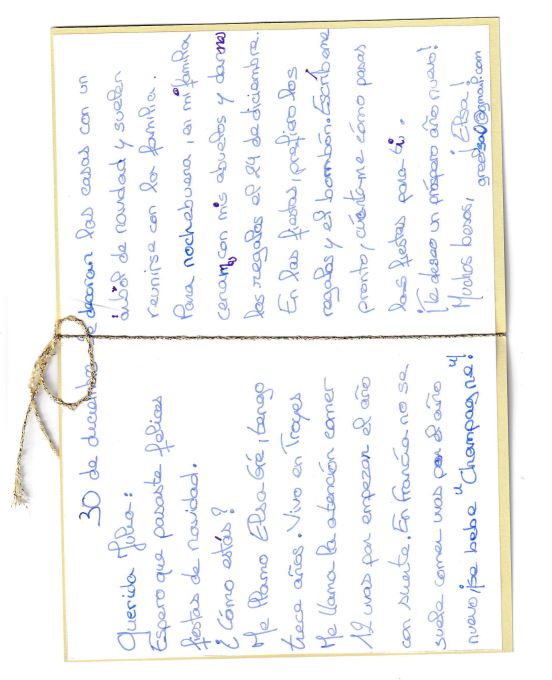 30 de diciembre
Querida Julia:
Espero que pasaste felices
fiestas de navidad.
¿Cómo estás?
Me llamo Elsa Gré, tengo
trece años. Vivo en Troyes
Me llama la atención comer
12 uvas por empezar el año
con suerte. En Francia no se
suele comer uvas por el año
nuevo, ¡se bebe "Champagne"!
se decoran las casas con un
árbol de navidad y suelen
reunirse con la familia.
Para nochebuena, en mi familia
cenamos con mis abuelos y damos
los regalos el 24 de diciembre.
En las fiestas, prefiero los
regalos y el bombón. Escríbeme
pronto, cuéntame cómo pasas
las fiestas para ti.
¡Te deseo un próspero año nuevo!
Muchos besos, ¡Elsa!